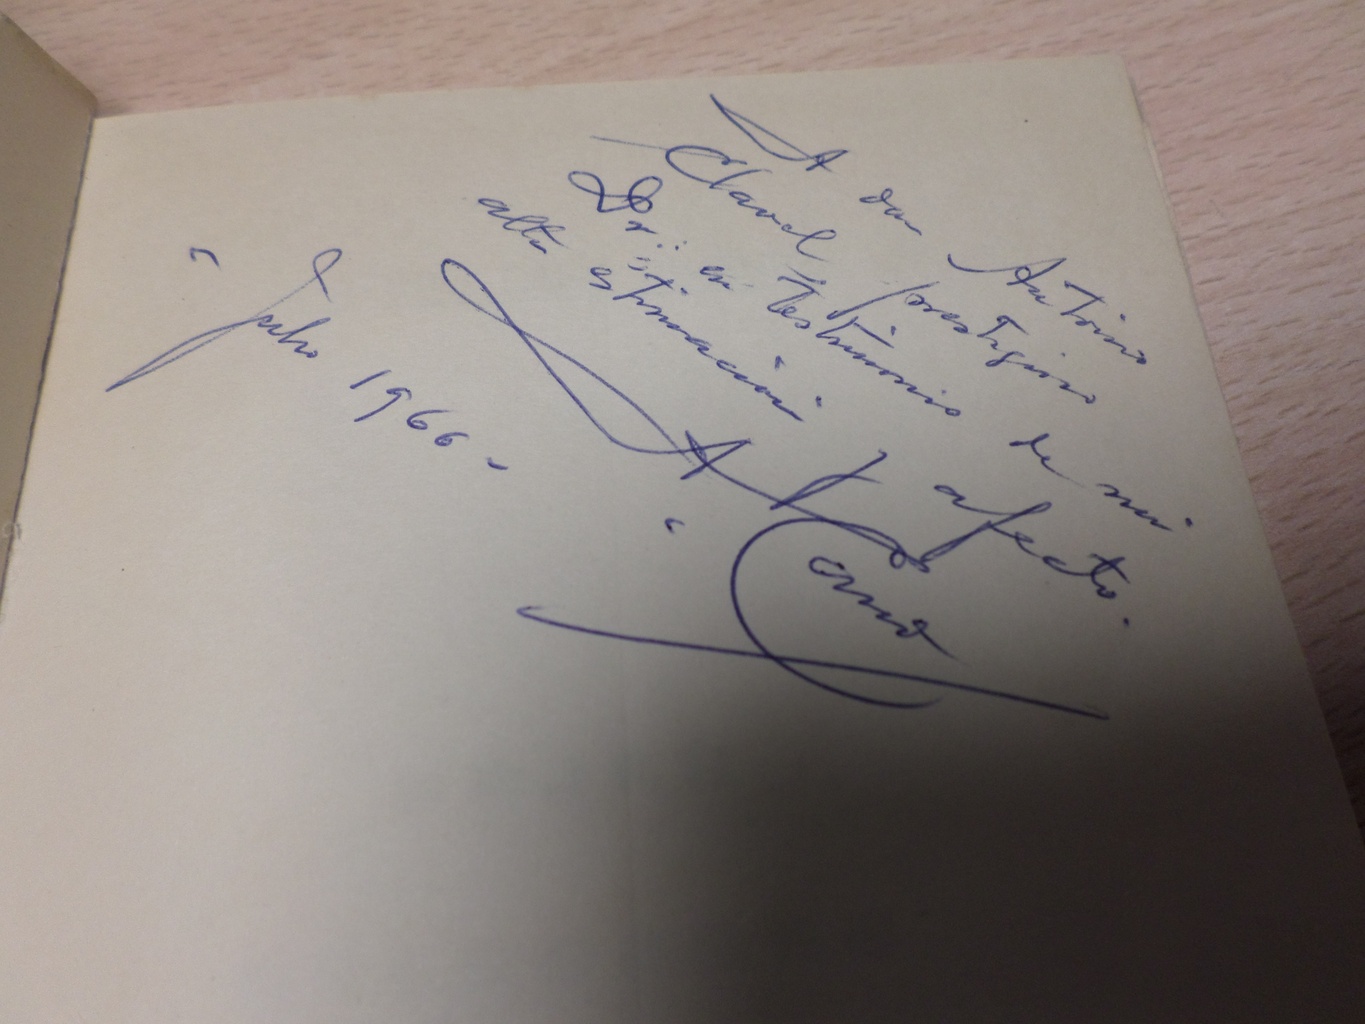 A don Antonio
Clavel, prestigioso
Dr.: en testimonio de mi
alta estimación y afecto.
A. Cano
Julio 1966 -